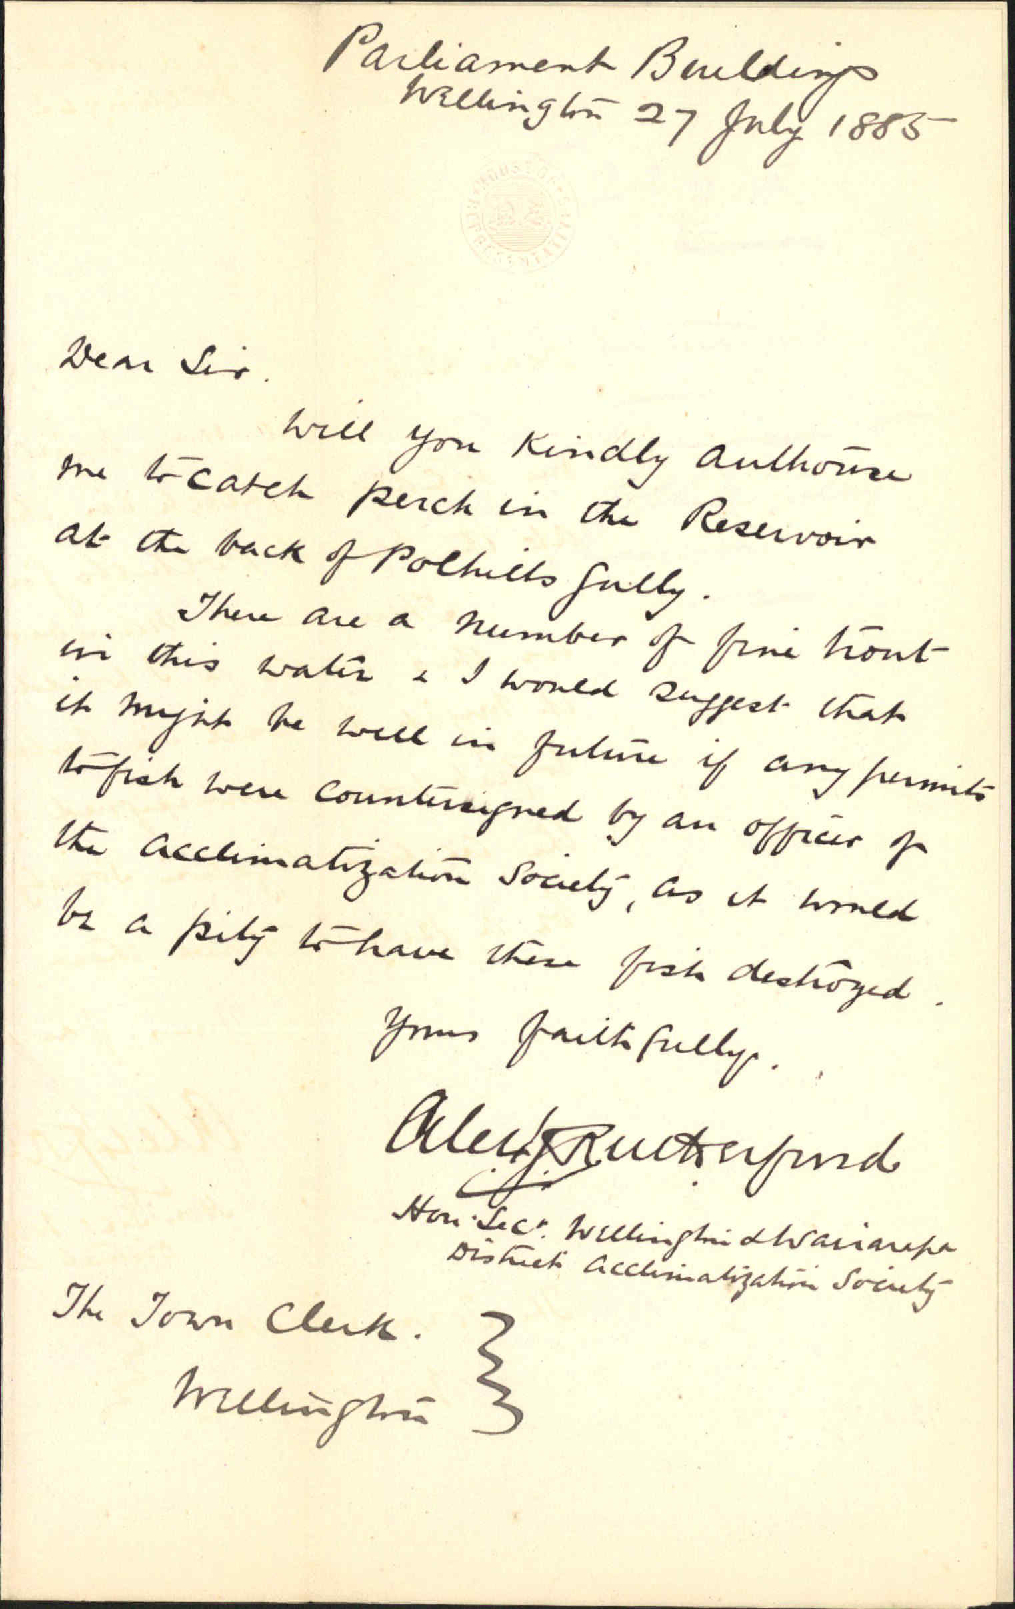 Parliament Buildings
Wellington 27 July 1885
HOUSE OF REPRESENTATIVES
Dear Sir.
Will you Kindly authorise
me to catch perch in the Reservoir
at the back of Polhills Gully.
There are a number of fine trout
in this water & I would suggest that
it might be well in future if any permits
to fish were countersigned by an officer of
the Acclimatization Society, as it would
be a pity to have these fish destroyed.
Yours faithfully.
Alex J Rutherfurd
Hon. Secy. Wellington & Wairarapa
District Acclimatization Society
The Town Clerk.
Wellington